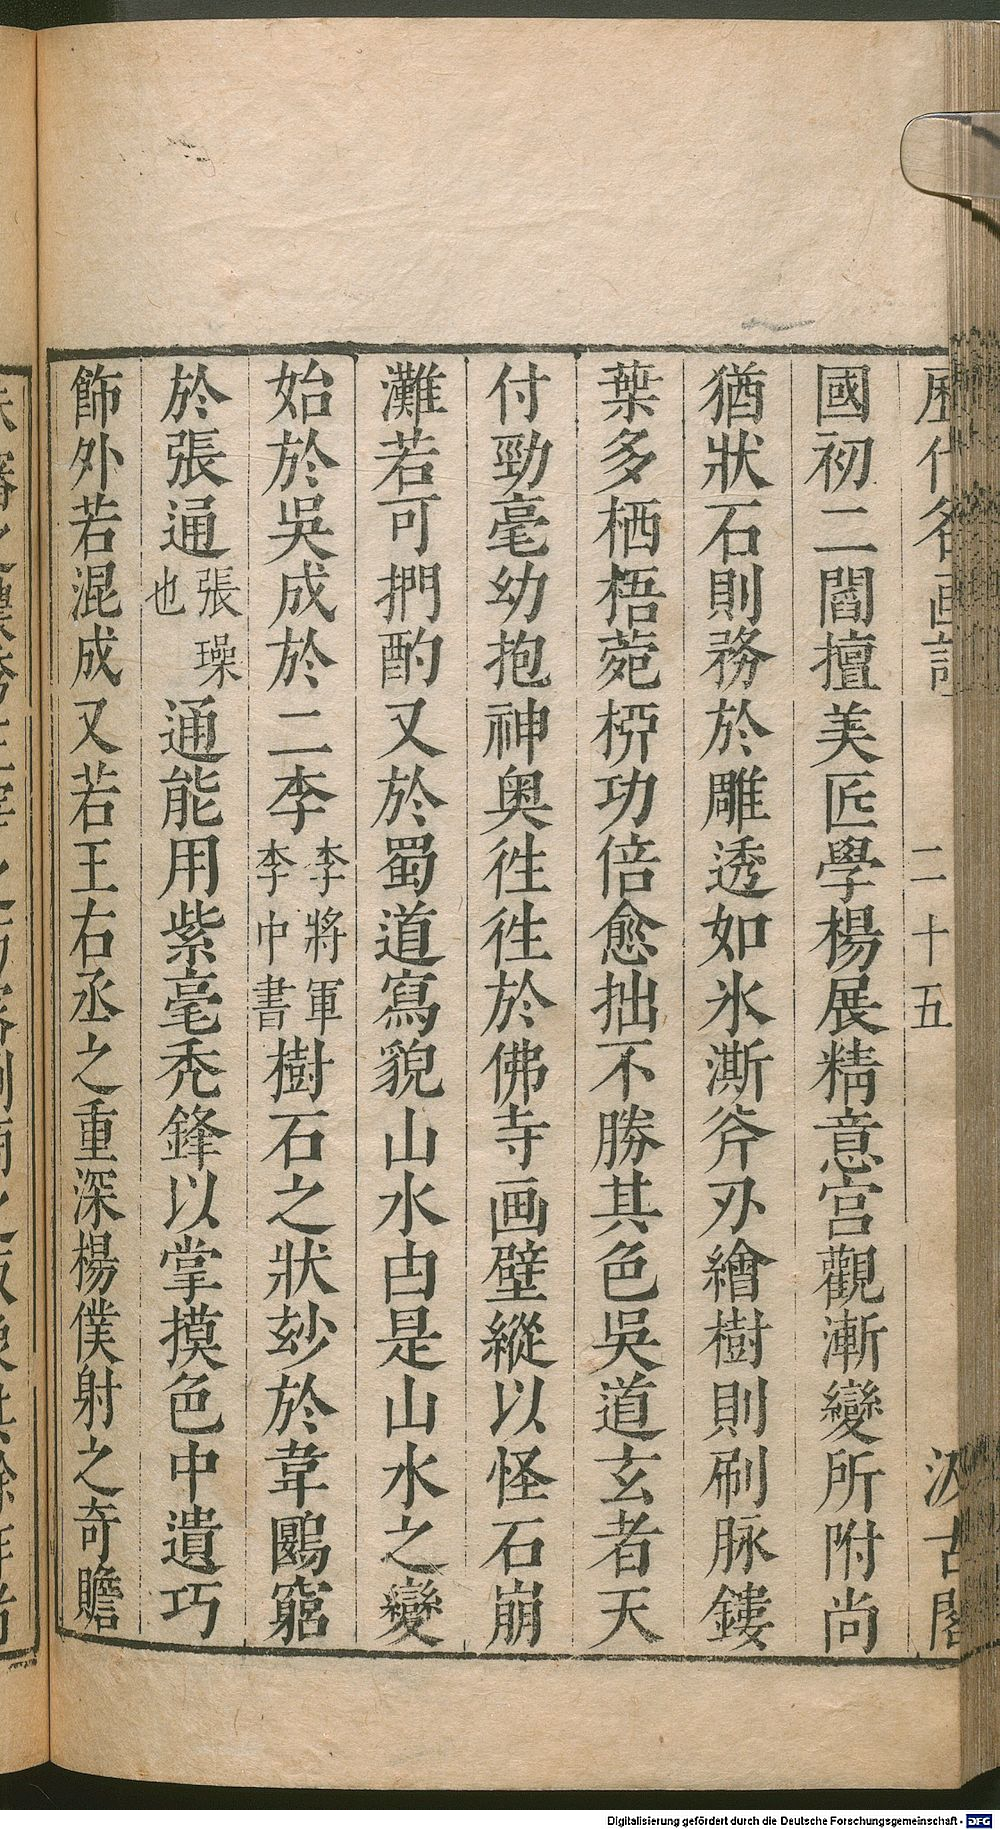 歷代名画記 二十五 汲古閣
國初二閻擅美匠學楊展精意宮觀漸變所附尚
猶狀石則務於雕透如氷澌斧刃繪樹則刷脉鏤
葉多栖梧菀栁功倍愈拙不勝其色吳道玄者天
付勁毫幼抱神奥徃徃於佛寺画壁縱以怪石崩
灘若可捫酌又於蜀道寫貌山水由是山水之變
始於吳成於二李李將軍李中書樹石之狀玅於韋鶠窮
於張通張璪也通能用紫毫禿鋒以掌摸色中遺巧
飾外若混成又若王右丞之重深楊僕射之奇贍
Digitalisierung gefördert durch die Deutsche Forschungsgemeinschaft - DFG